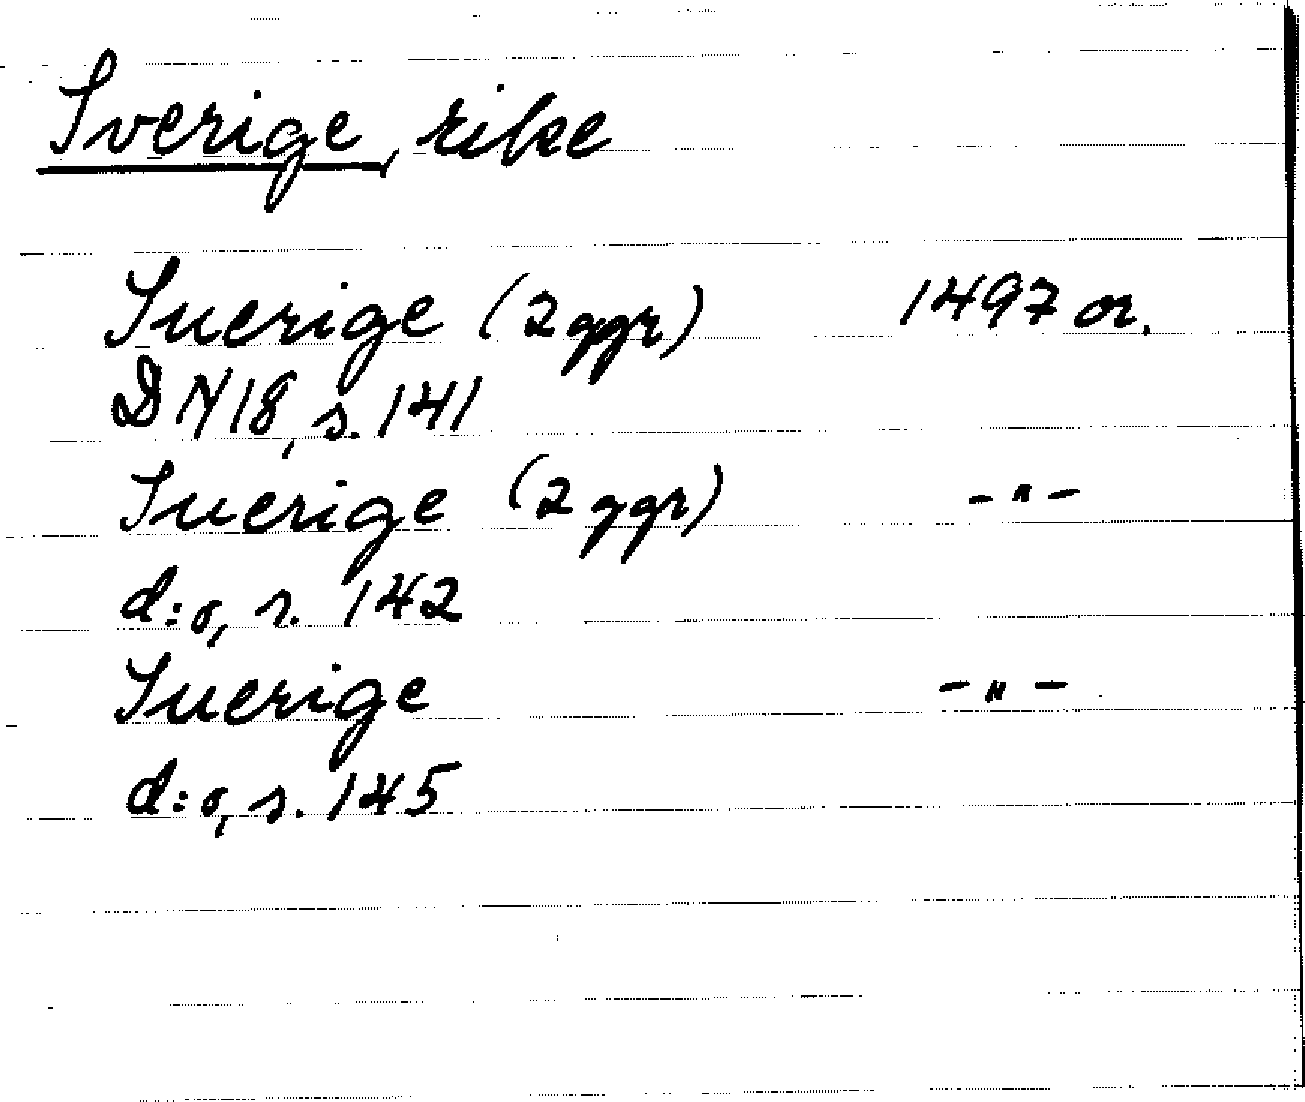 Sverige, rike
Suerige (2 ggr) 1497 or.
DN 18, s. 141
Suerige (2 ggr) -"-
d:o, s. 142
Suerige -"-
d:o, s. 145